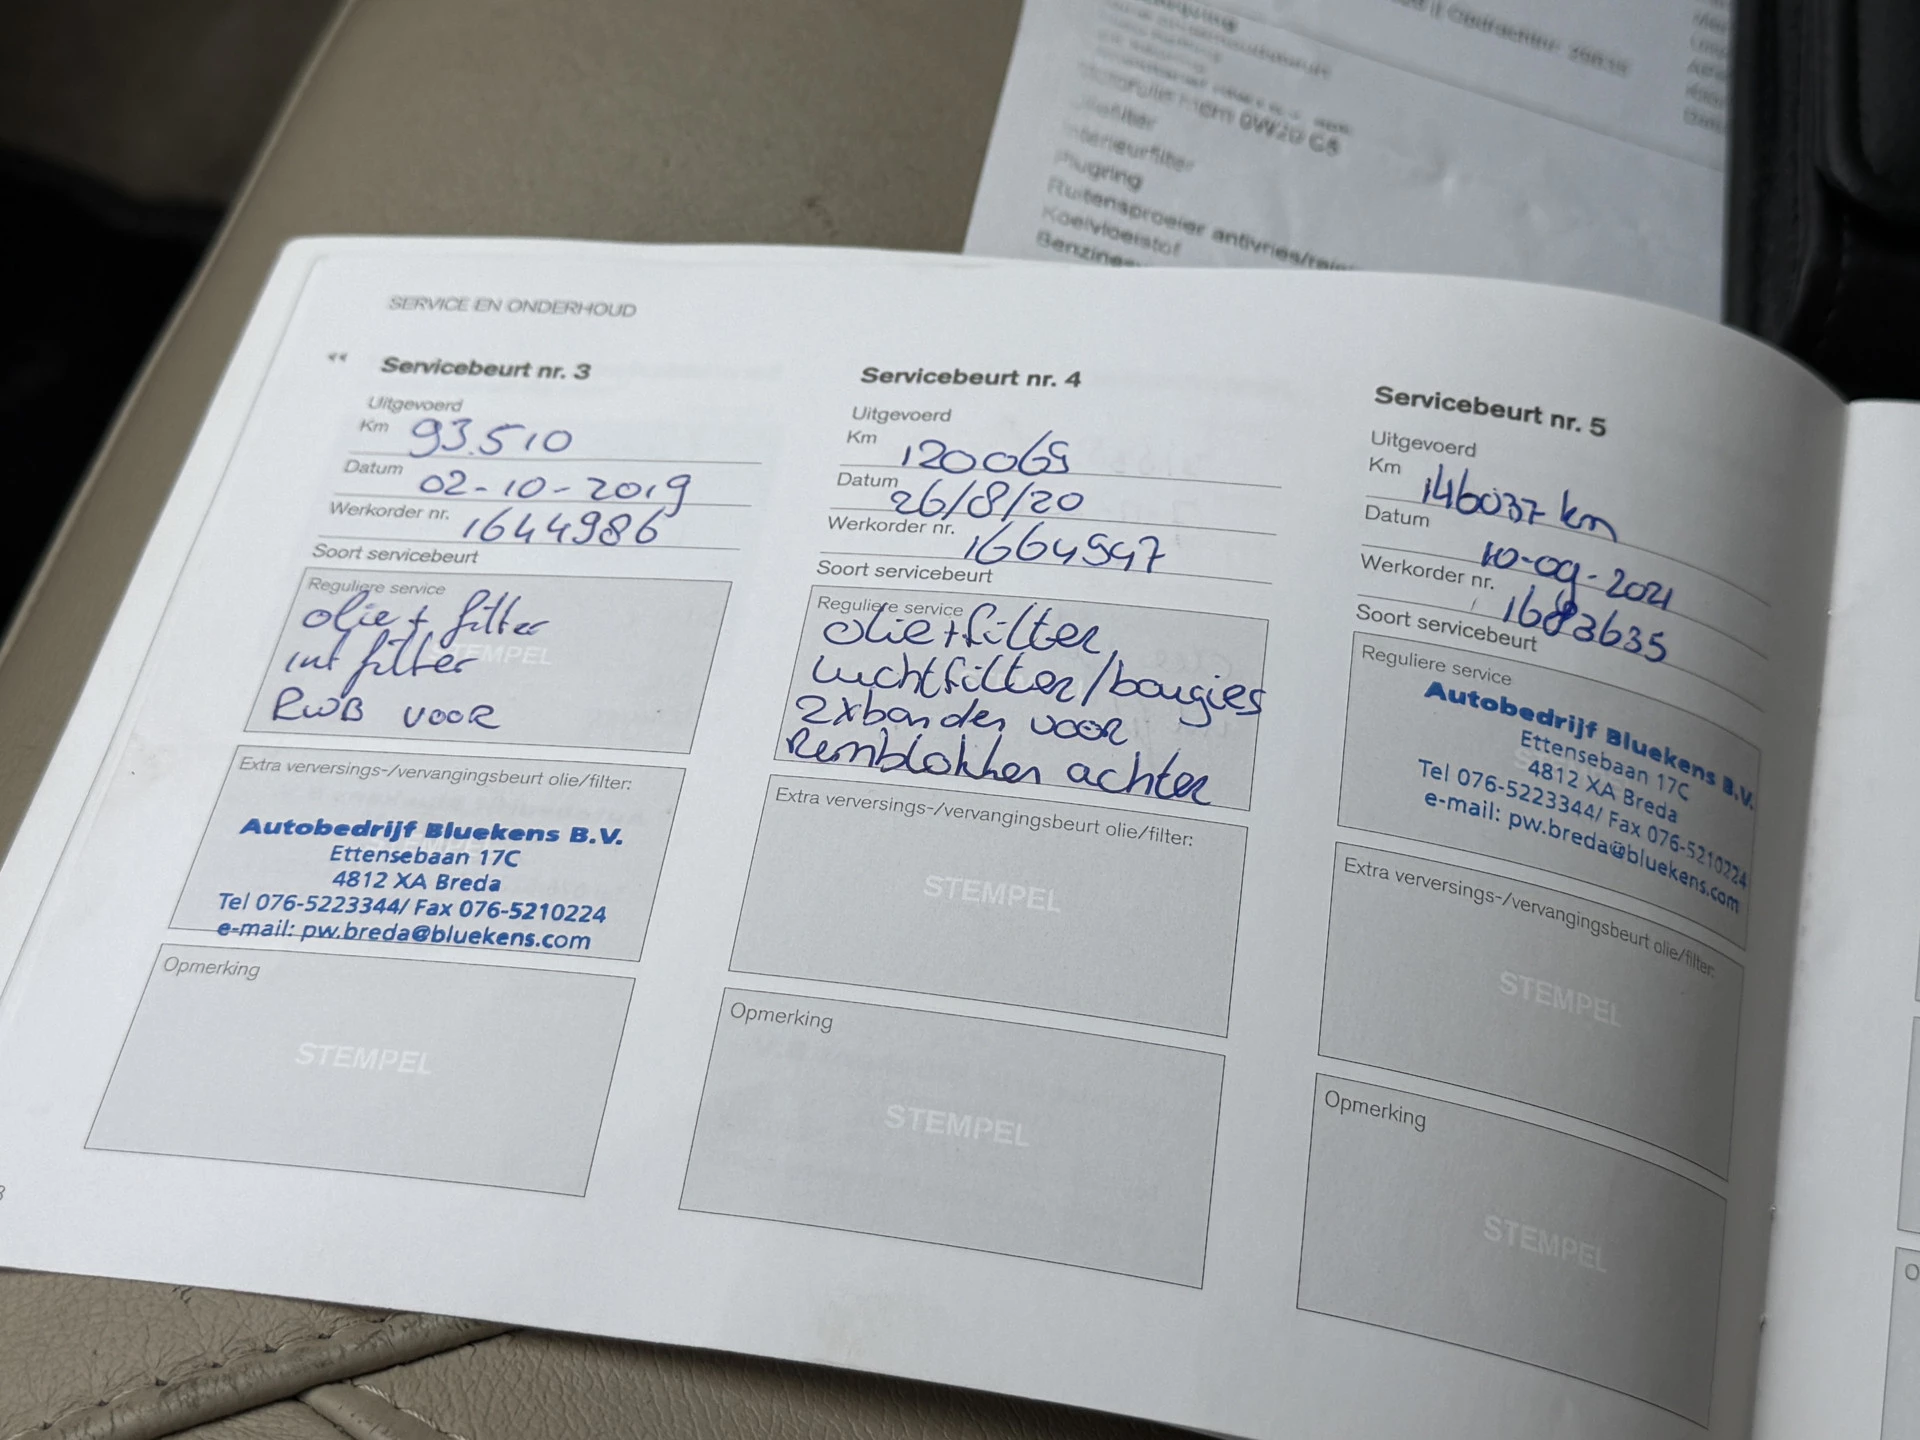 0W20 C5
Interieurfilter
Plugring
Ruitensproeier
Koelvloeistof
SERVICE EN ONDERHOUD
Servicebeurt nr. 3
Uitgevoerd
Km 93.510
Datum 02-10-2019
Werkorder nr. 1644986
Soort servicebeurt
Reguliere service
olie + filter
int filter
STEMPEL
RWB VOOR
Extra verversings-/vervangingsbeurt olie/filter:
Autobedrijf Bluekens B.V.
Ettensebaan 17C
4812 XA Breda
Tel 076-5223344/ Fax 076-5210224
e-mail: pw.breda@bluekens.com
Opmerking
STEMPEL
Servicebeurt nr. 4
Uitgevoerd
Km 120069
Datum 26/8/20
Werkorder nr. 1664947
Soort servicebeurt
Reguliere service
olie+filter
luchtfilter/bougies
2x banden voor
Remblokken achter
Extra verversings-/vervangingsbeurt olie/filter:
STEMPEL
Opmerking
STEMPEL
Servicebeurt nr. 5
Uitgevoerd
Km 146037 km
Datum 10-09-2021
Werkorder nr. 1683635
Soort servicebeurt
Reguliere service
Autobedrijf Bluekens B.V.
Ettensebaan 17C
4812 XA Breda
Tel 076-5223344/ Fax 076-5210224
e-mail: pw.breda@bluekens.com
Extra verversings-/vervangingsbeurt olie/filter:
STEMPEL
Opmerking
STEMPEL